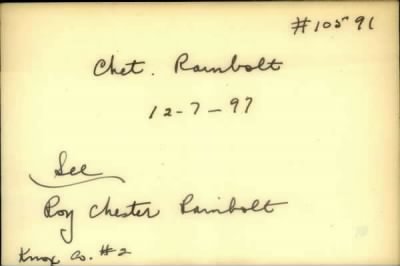 #10591
Chet. Rambolt
12-7-97
See
Roy Chester Rambolt
Knox Co. #2